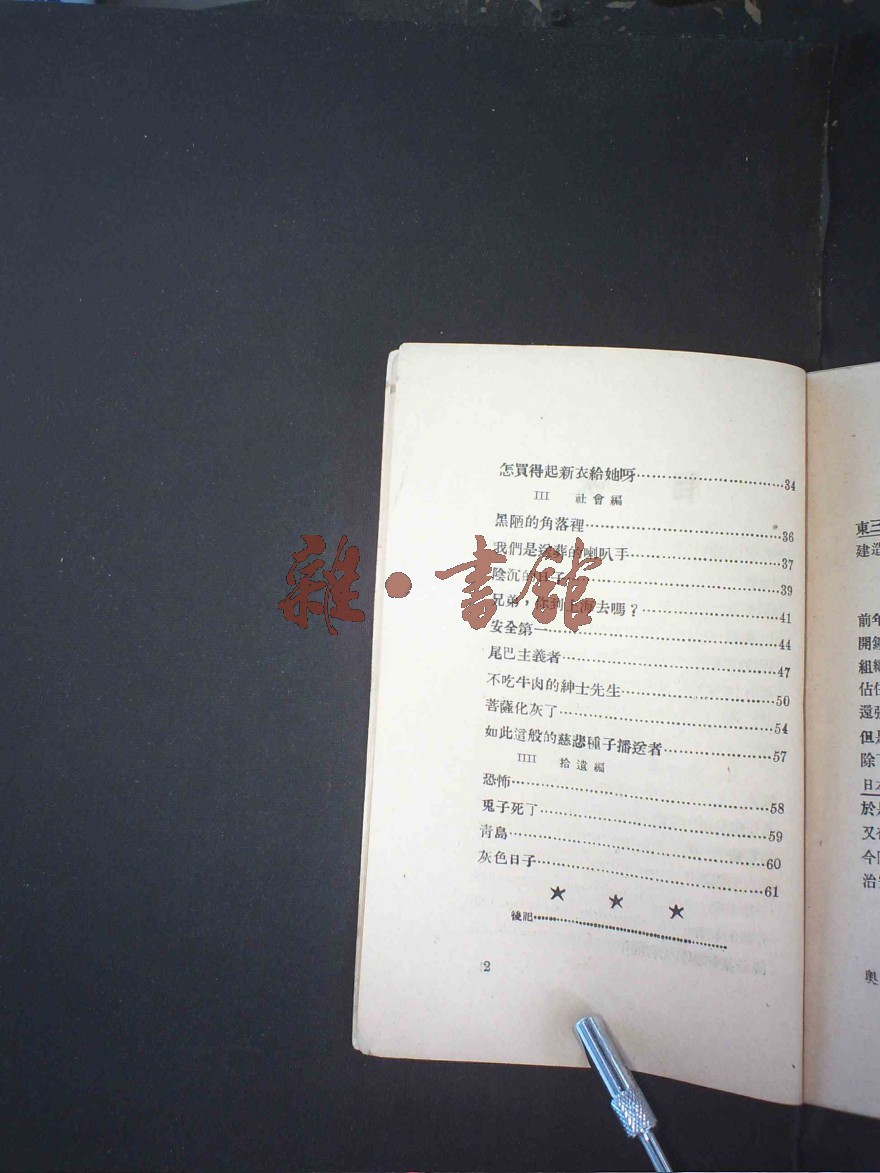 怎買得起新衣給她呀……34
III 社會編
黑陋的角落裡……36
我們是送葬的喇叭手……37
陰沉的日子……39
兄弟，你到上海去嗎？……41
安全第一……44
尾巴主義者……47
不吃牛肉的紳士先生……50
菩薩化灰了……54
如此這般的慈悲種子播送者……57
IIII 拾遺編
恐怖……58
兎子死了……59
青島……60
灰色日子……61
★ ★ ★
後記……
2
雜·書館
東三
建造
前年
開鑛
組織
佔住
還張
但是
除了
日本
於是
又
今
治
奧